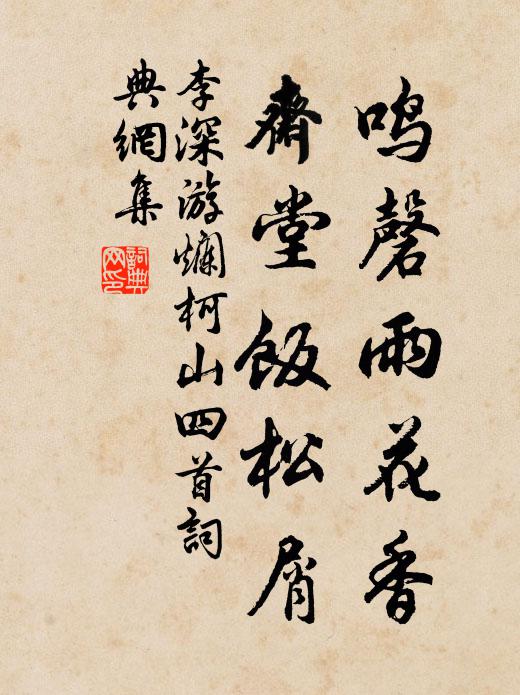 鸣磬雨花香
齋堂飯松屑
李深游爛柯山四首詞
典網集
詞典
网印